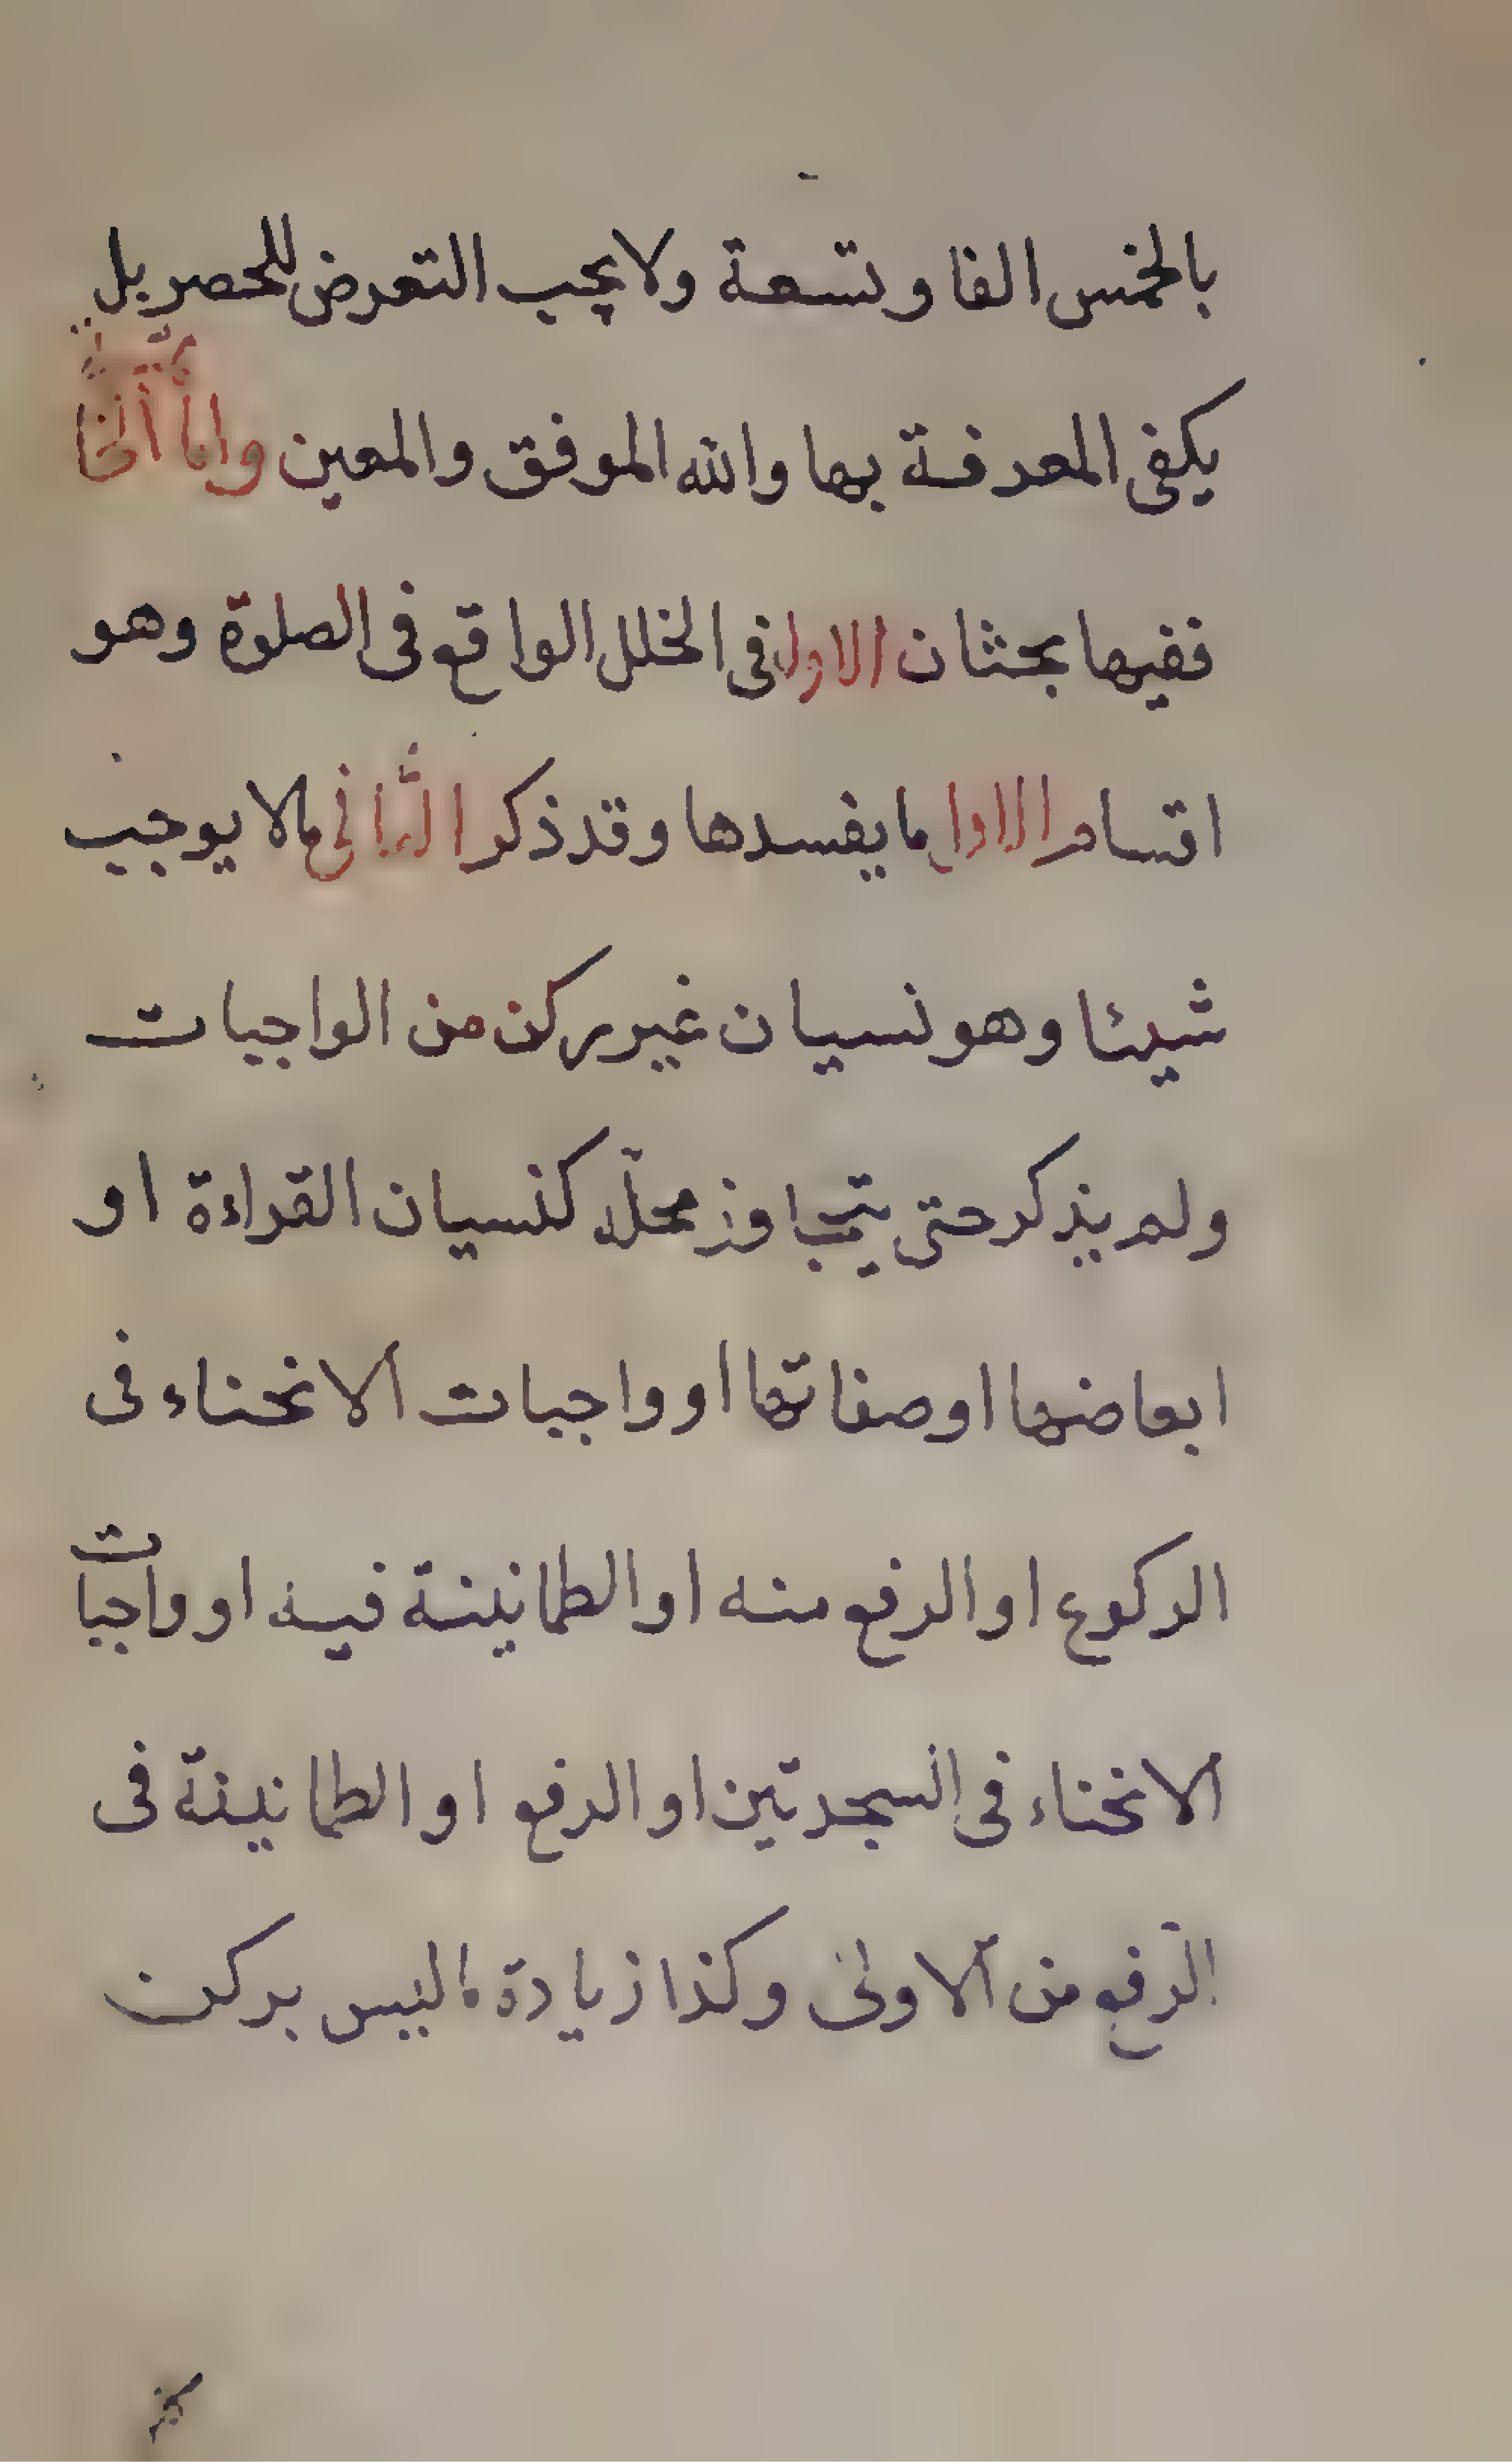 بالخمس الفا وتسعة ولا يجب التعرض للحصر بل
يكفى المعرفة بها والله الموفق والمعين واما الخاتمة
ففيها بحثان الاول فى الخلل الواقع فى الصلوة وهو
اقسام الاول ما يفسدها وقد ذكر الثانى ما لا يوجب
شيئا وهو نسيان غير ركن من الواجبات
ولم يذكر حتى يتجاوز محلّه كنسيان القراءة او
ابعاضها او صفاتها او واجبات الانحناء فى
الركوع او الرفع منه او الطمانينة فيه او واجبات
الانحناء فى السجدتين او الرفع او الطمانينة فى
الرّفع من الاولى وكذا زيادة ما ليس بركن